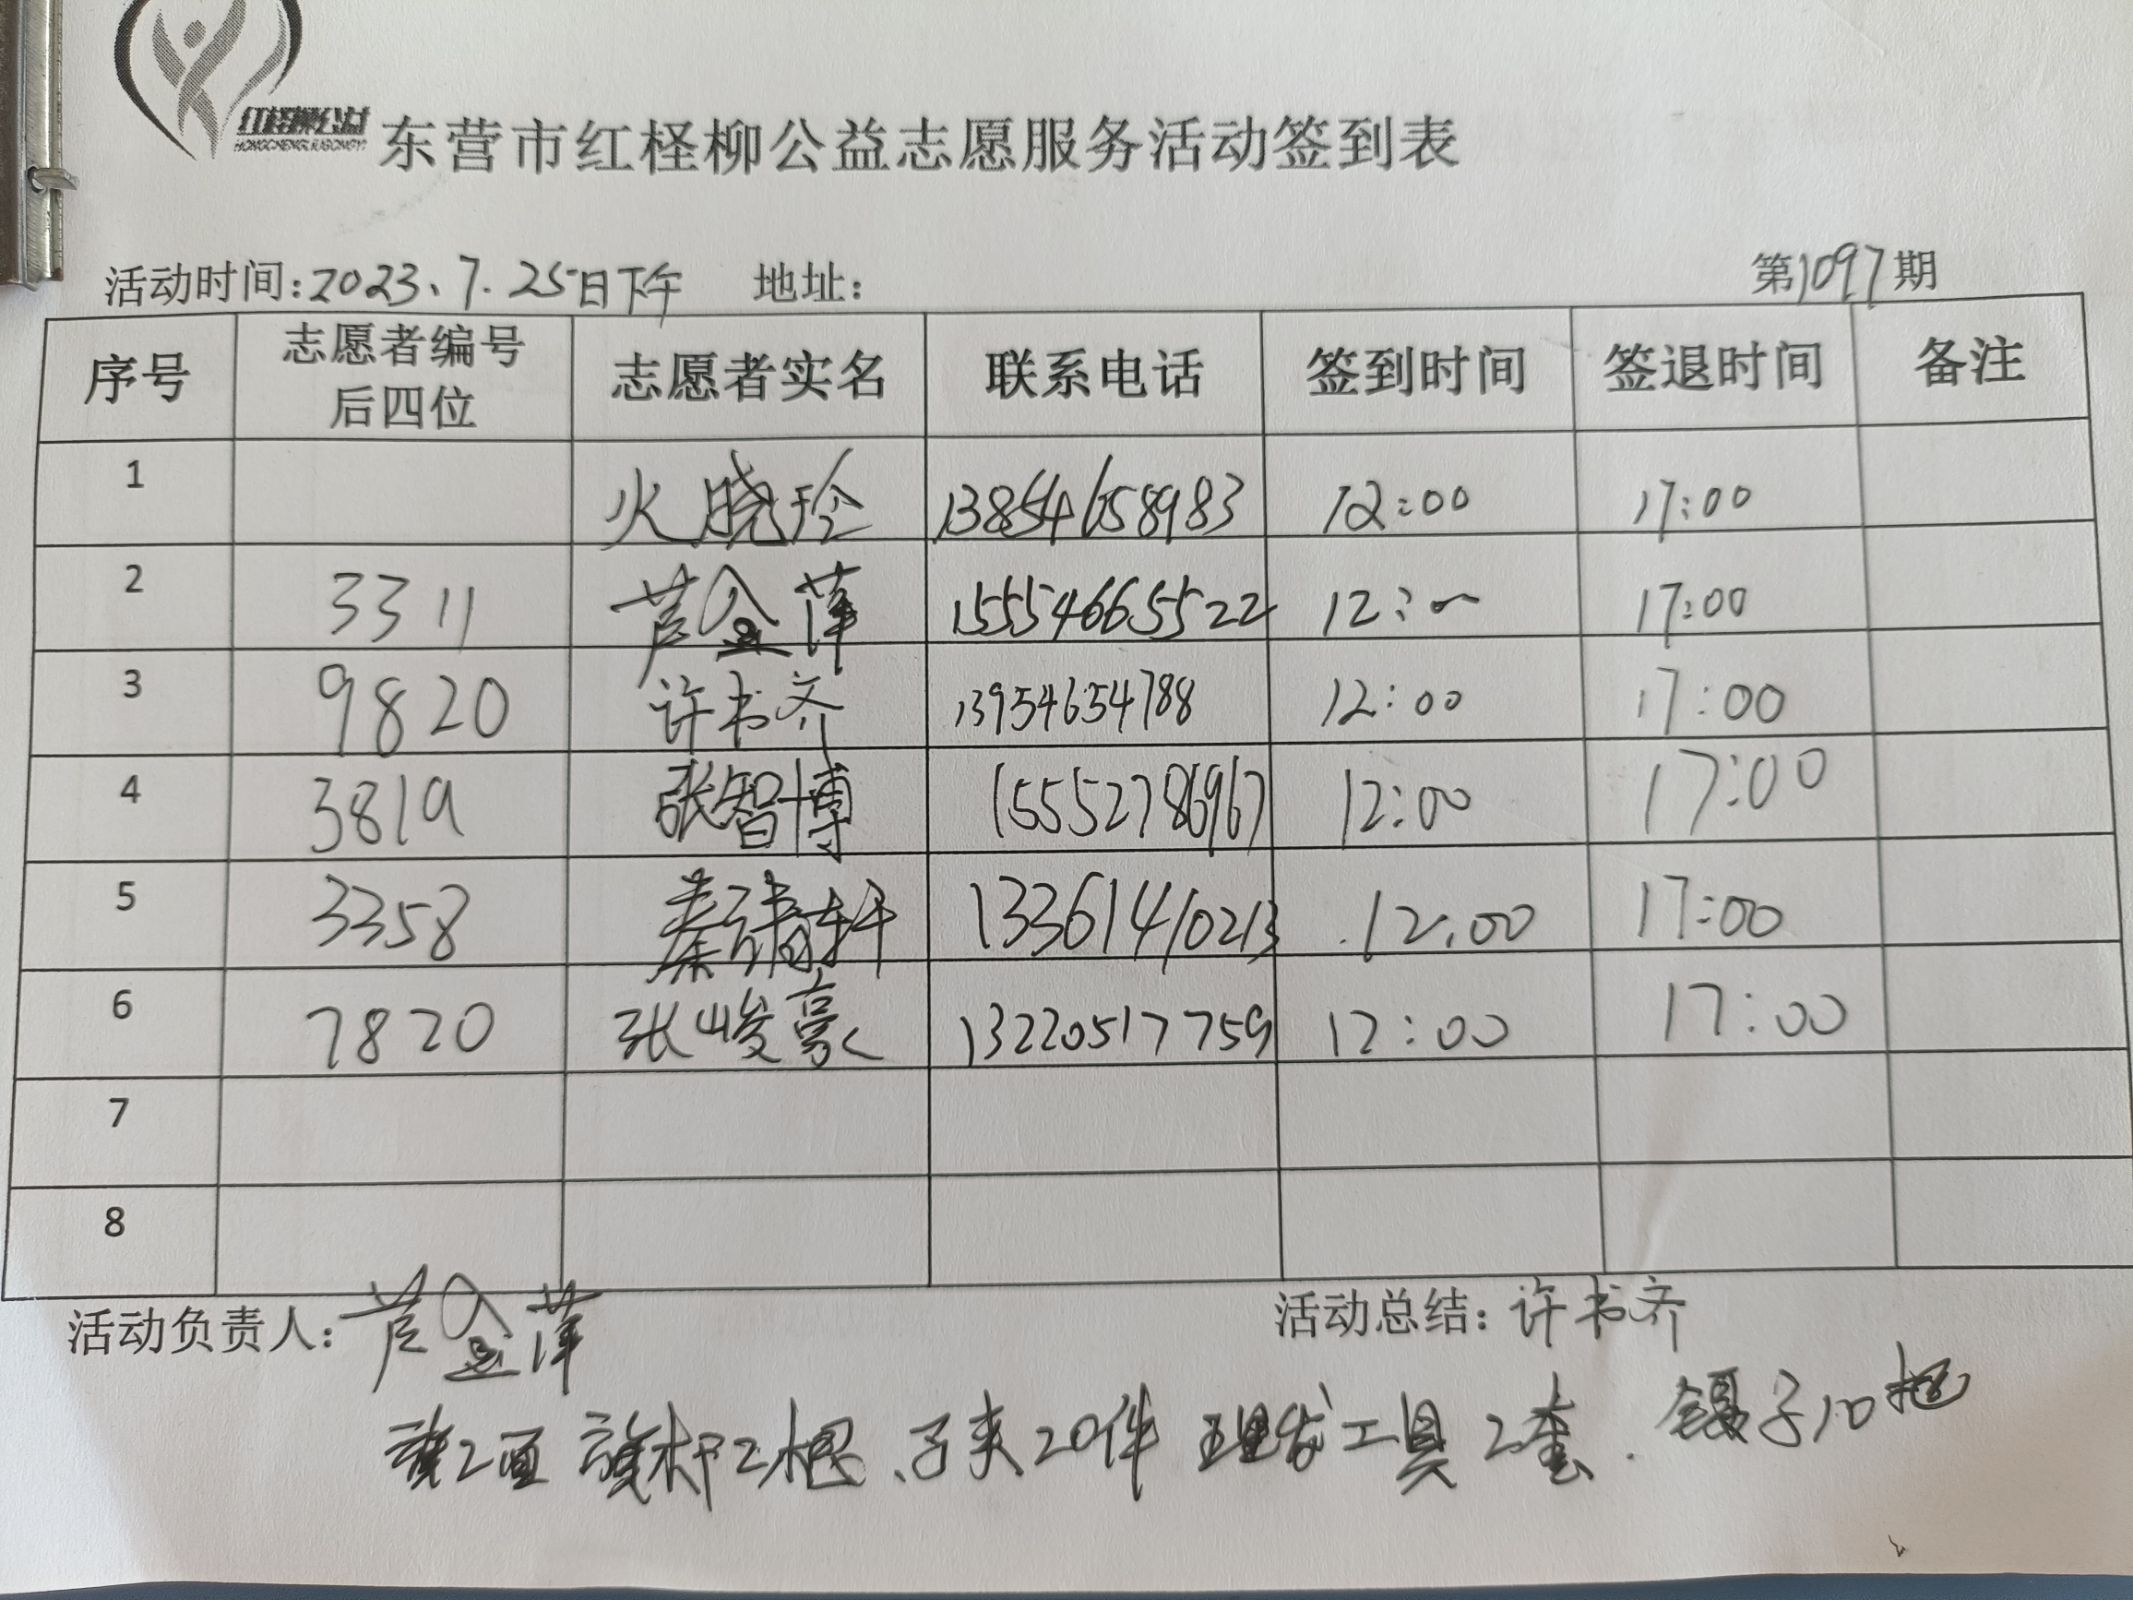 红柽柳公益
东营市红柽柳公益志愿服务活动签到表
活动时间:2023、7.25日下午 地址: 第1097期
序号 志愿者编号后四位 志愿者实名 联系电话 签到时间 签退时间 备注
1 火晓玲 13854658983 12:00 17:00
2 3311 芦金萍 15554665522 12:00 17:00
3 9820 许书齐 13954654788 12:00 17:00
4 3819 张智博 15552786967 12:00 17:00
5 3358 秦靖轩 13361410213 12.00 17:00
6 7820 张峻豪 13220517759 12:00 17:00
7
8
活动负责人: 芦金萍 活动总结: 许书齐
旗2面 旗杆2根、子夹20件 理发工具2套. 镊子10把